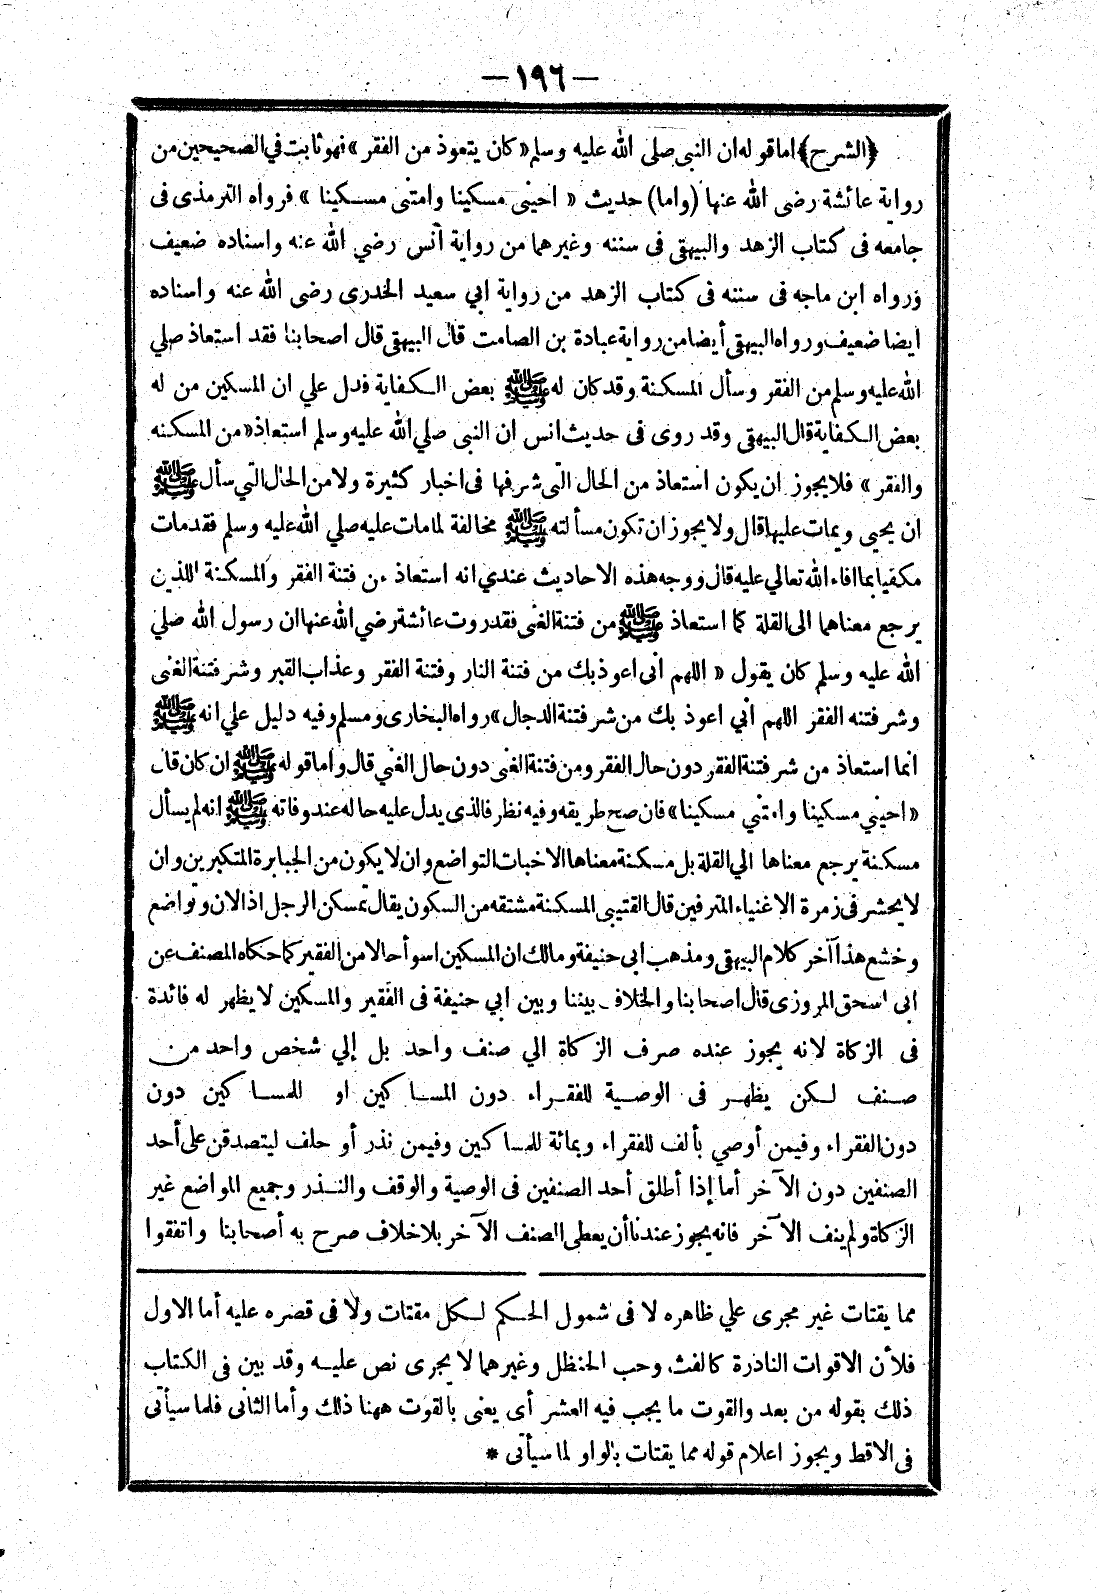 —١٩٦—
﴿الشرح﴾ اما قوله ان النبي صلى الله عليه وسلم «كان يتعوذ من الفقر» فهو ثابت في الصحيحين من
رواية عائشة رضى الله عنها (واما) حديث « احينى مسكينا وامتنى مسكينا » فرواه الترمذى فى
جامعه فى كتاب الزهد والبيهقى فى سننه وغيرهما من رواية أنس رضي الله عنه واسناده ضعيف
ورواه ابن ماجه فى سننه فى كتاب الزهد من رواية ابي سعيد الخدرى رضى الله عنه واسناده
ايضا ضعيف ورواه البيهقى أيضا من رواية عبادة بن الصامت قال البيهقى قال اصحابنا فقد استعاذ صلي
الله عليه وسلم من الفقر وسأل المسكنة وقد كان له ﷺ بعض الكفاية فدل علي ان المسكين من له
بعض الكفاية قال البيهقى وقد روى فى حديث انس ان النبى صلي الله عليه وسلم استعاذ «من المسكنه
والفقر » فلا يجوز ان يكون استعاذ من الحال التى شرفها فى اخبار كثيرة ولا من الحال التي سأل ﷺ
ان يحيى ويمات عليها قال ولا يجوز ان تكون مسألته ﷺ مخالفة لما مات عليه صلي الله عليه وسلم فقد مات
مكفيا بما افاء الله تعالي عليه قال ووجه هذه الاحاديث عندي انه استعاذ من فتنة الفقر والمسكنة اللذين
يرجع معناهما الى القلة كما استعاذ ﷺ من فتنة الغنى فقد روت عائشة رضي الله عنها ان رسول الله صلي
الله عليه وسلم كان يقول « اللهم انى اعوذ بك من فتنة النار وفتنة الفقر وعذاب القبر وشر فتنة الغنى
وشر فتنه الفقر اللهم أني اعوذ بك من شر فتنة الدجال» رواه البخارى ومسلم وفيه دليل علي انه ﷺ
انما استعاذ من شر فتنة الفقر دون حال الفقر ومن فتنة الغنى دون حال الغني قال واما قوله ﷺ ان كان قال
« احيني مسكينا وامتني مسكينا» فان صح طريقه وفيه نظر فالذى يدل عليه حاله عند وفاته ﷺ انه لم يسأل
مسكنة يرجع معناها الي القلة بل مسكنة معناها الاخبات التواضع وان لا يكون من الجبابرة المتكبرين وان
لا يحشر فى زمرة الاغنياء المترفين قال القتيبى المسكنة مشتقه من السكون يقال تمسكن الرجل اذا لان وتواضع
وخشع هذا آخر كلام البيهقى ومذهب ابى حنيفة ومالك ان المسكين اسوأ حالا من الفقير كما حكاه المصنف عن
ابى اسحق المروزى قال اصحابنا والخلاف بيننا وبين ابي حنيفة فى الفقير والمسكين لا يظهر له فائدة
فى الزكاة لانه يجوز عنده صرف الزكاة الي صنف واحد بل إلي شخص واحد من
صنف لكن يظهر فى الوصية للفقراء دون المساكين او للمساكين دون
دون الفقراء وفيمن أوصي بألف للفقراء وبمائة للمساكين وفيمن نذر أو حلف ليتصدقن على أحد
الصنفين دون الآخر أما إذا أطلق أحد الصنفين فى الوصية والوقف والنذر وجميع المواضع غير
الزكاة ولم ينف الآخر فانه يجوز عندنا أن يعطى الصنف الآخر بلا خلاف صرح به أصحابنا واتفقوا
مما يقتات غير مجرى علي ظاهره لا فى شمول الحكم لكل مقتات ولا فى قصره عليه أما الاول
فلأن الاقوات النادرة كالفث وحب الحنظل وغيرهما لا يجرى نص عليه وقد بين فى الكتاب
ذلك بقوله من بعد والقوت ما يجب فيه العشر أى يغى بالقوت ههنا ذلك وأما الثانى فلما سيأتى
فى الاقط ويجوز اعلام قوله مما يقتات بالواو لما سيأتى *